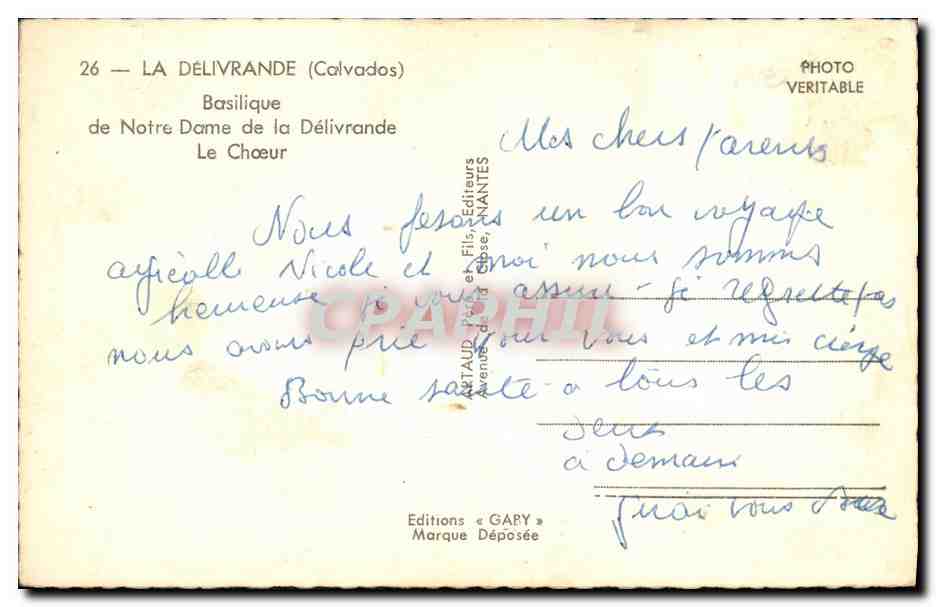 26 — LA DÉLIVRANDE (Calvados)
Basilique
de Notre Dame de la Délivrande
Le Chœur
PHOTO
VERITABLE
Mes chers parents
Nous fesons un bon voyage
agréable Nicole et moi nous sommes
heureuse je vous assure - je regrette pas
nous avons prié pour vous et mis cierge
Bonne santé a tous les
deux
a demain
j'irai vous
ARTAUD Père et Fils, Editeurs
Avenue de la Close, NANTES
CPAPHIL
Editions « GABY »
Marque Déposée